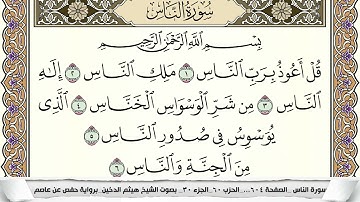 سُورَةُ النَّاسِ
بِسْمِ اللَّهِ الرَّحْمَٰنِ الرَّحِيمِ
قُلْ أَعُوذُ بِرَبِّ النَّاسِ ١ مَلِكِ النَّاسِ ٢ إِلَٰهِ
النَّاسِ ٣ مِن شَرِّ الْوَسْوَاسِ الْخَنَّاسِ ٤ الَّذِي
يُوَسْوِسُ فِي صُدُورِ النَّاسِ ٥
مِنَ الْجِنَّةِ وَالنَّاسِ ٦
سورة الناس _الصفحة ٦٠٤_... الحزب ٦٠_ الجزء ٣٠_ بصوت الشيخ هيثم الدخين_ برواية حفص عن عاصم